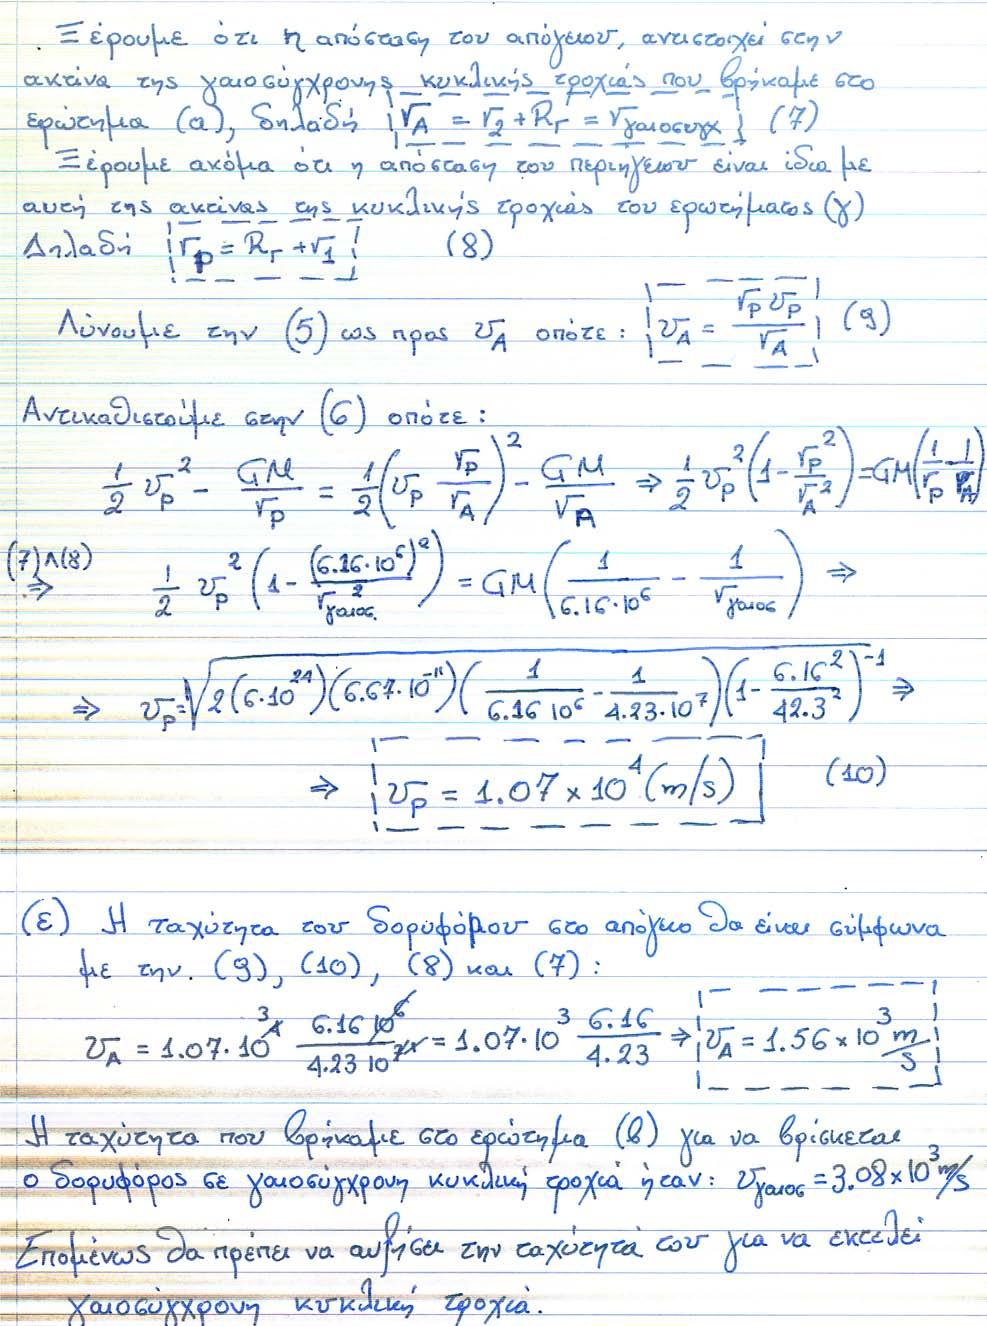 Ξέρουμε ότι η απόσταση του απόγειου, αντιστοιχεί στην
ακτίνα της γαιοσύγχρονης κυκλικής τροχιάς που βρήκαμε στο
ερώτημα (α), δηλαδή r_A = r_2 + R_Γ = r_γαιοσυγχ (7)
Ξέρουμε ακόμα ότι η απόσταση του περιηγείου είναι ίδια με
αυτή της ακτίνας της κυκλικής τροχιάς του ερωτήματος (γ)
Δηλαδή r_p = R_Γ + r_1 (8)
Λύνουμε την (5) ως προς υ_A οπότε: υ_A = r_P υ_P / r_A (9)
Αντικαθιστούμε στην (6) οπότε:
1/2 υ_P^2 - GM/r_P = 1/2 (υ_P r_P/r_A)^2 - GM/r_A ⇒ 1/2 υ_P^2 (1 - r_P^2/r_A^2) = GM (1/r_P - 1/r_A)
(7)∧(8) ⇒ 1/2 υ_P^2 (1 - (6.16·10^6)^2/r_γαιοσ.^2) = GM (1/6.16·10^6 - 1/r_γαιοσ) ⇒
⇒ υ_P = √(2(6·10^24)(6.67·10^-11)(1/6.16 10^6 - 1/4.23·10^7)(1 - 6.16^2/42.3^2)^-1) ⇒
⇒ υ_P = 1.07 × 10^4 (m/s) (10)
(ε) Η ταχύτητα του δορυφόρου στο απόγειο θα είναι σύμφωνα
με την. (9), (10), (8) και (7):
υ_A = 1.07·10^3 6.16 10^6 / 4.23 10^7 = 1.07·10^3 6.16/4.23 ⇒ υ_A = 1.56 × 10^3 m/s
Η ταχύτητα που βρήκαμε στο ερώτημα (β) για να βρίσκεται
ο δορυφόρος σε γαιοσύγχρονη κυκλική τροχιά ήταν: υ_γαιοσ = 3.08 × 10^3 m/s
Επομένως θα πρέπει να αυξήσει την ταχύτητά του για να εκτελεί
γαιοσύγχρονη κυκλική τροχιά.